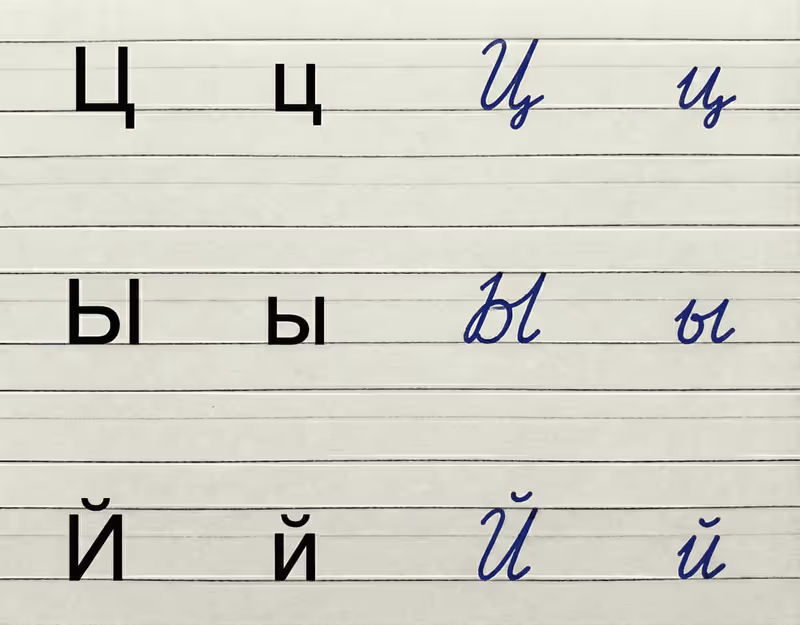 Ц ц Ц ц
Ы ы Ы ы
Й й Й й